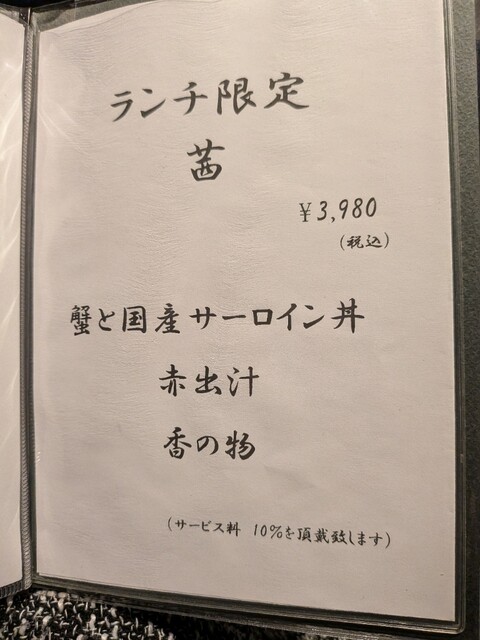 ランチ限定
茜
¥3,980
(税込)
蟹と国産サーロイン丼
赤出汁
香の物
(サービス料 10%を頂戴致します)